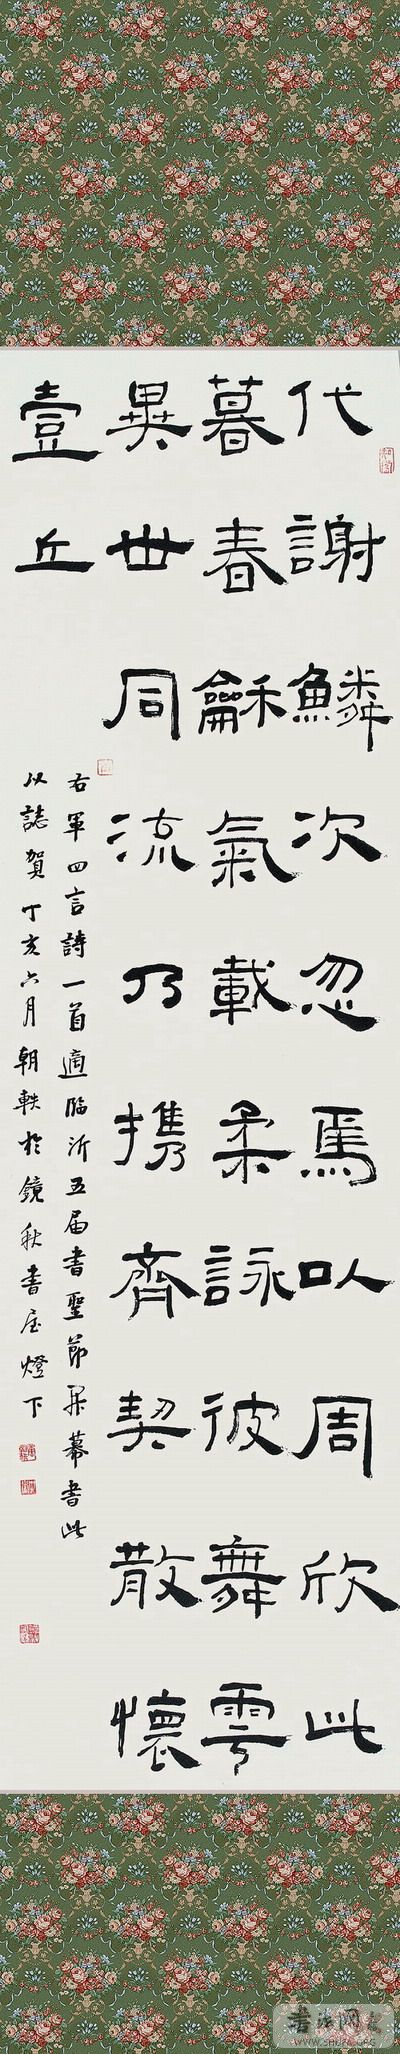 代謝鱗次忽焉以周欣此
暮春龢氣載柔詠彼舞雩
異世同流乃携齊契散懷
壹丘
右軍四言詩一首適臨沂五届書聖節開幕書此
以誌賀丁亥六月朝軼於鏡秋書屋燈下
WWW.SHUFA.ORG